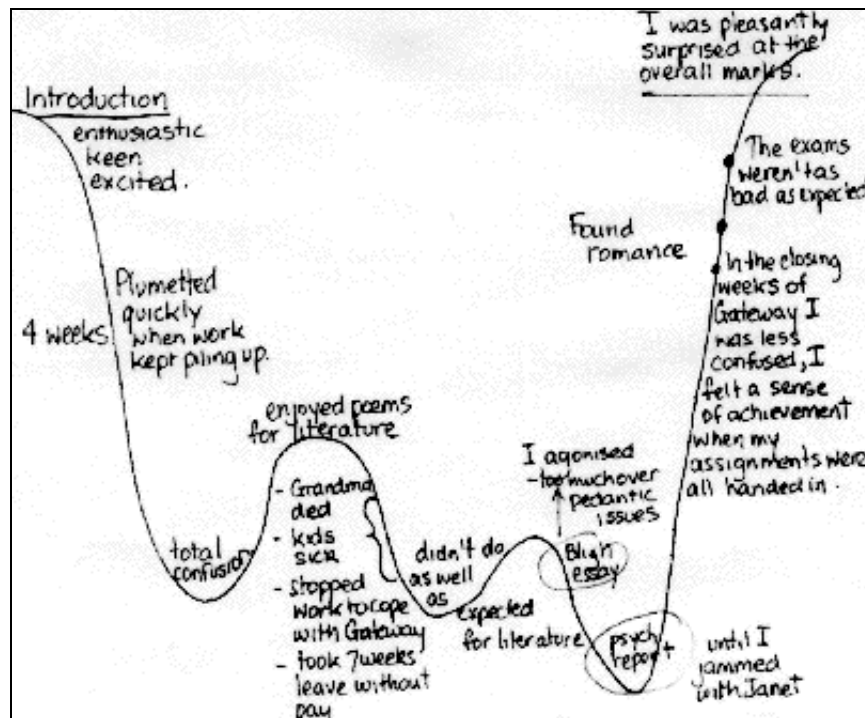 Introduction
enthusiastic
keen
excited.
4 weeks
Plumetted
quickly
when work
kept piling up.
total
confusion
enjoyed poems
for literature
- Grandma
died
- kids
sick
- stopped
work to cope
with Gateway
- took 7 weeks
leave without
pay
didn't do
as well
as
expected
for literature
I agonised
too much over
pedantic
issues
Bligh
essay
psych
report
until I
jammed
with Janet
In the closing
weeks of
Gateway I
was less
confused, I
felt a sense
of achievement
when my
assignments were
all handed in.
Found
romance
The exams
weren't as
bad as expected
I was pleasantly
surprised at the
overall marks.